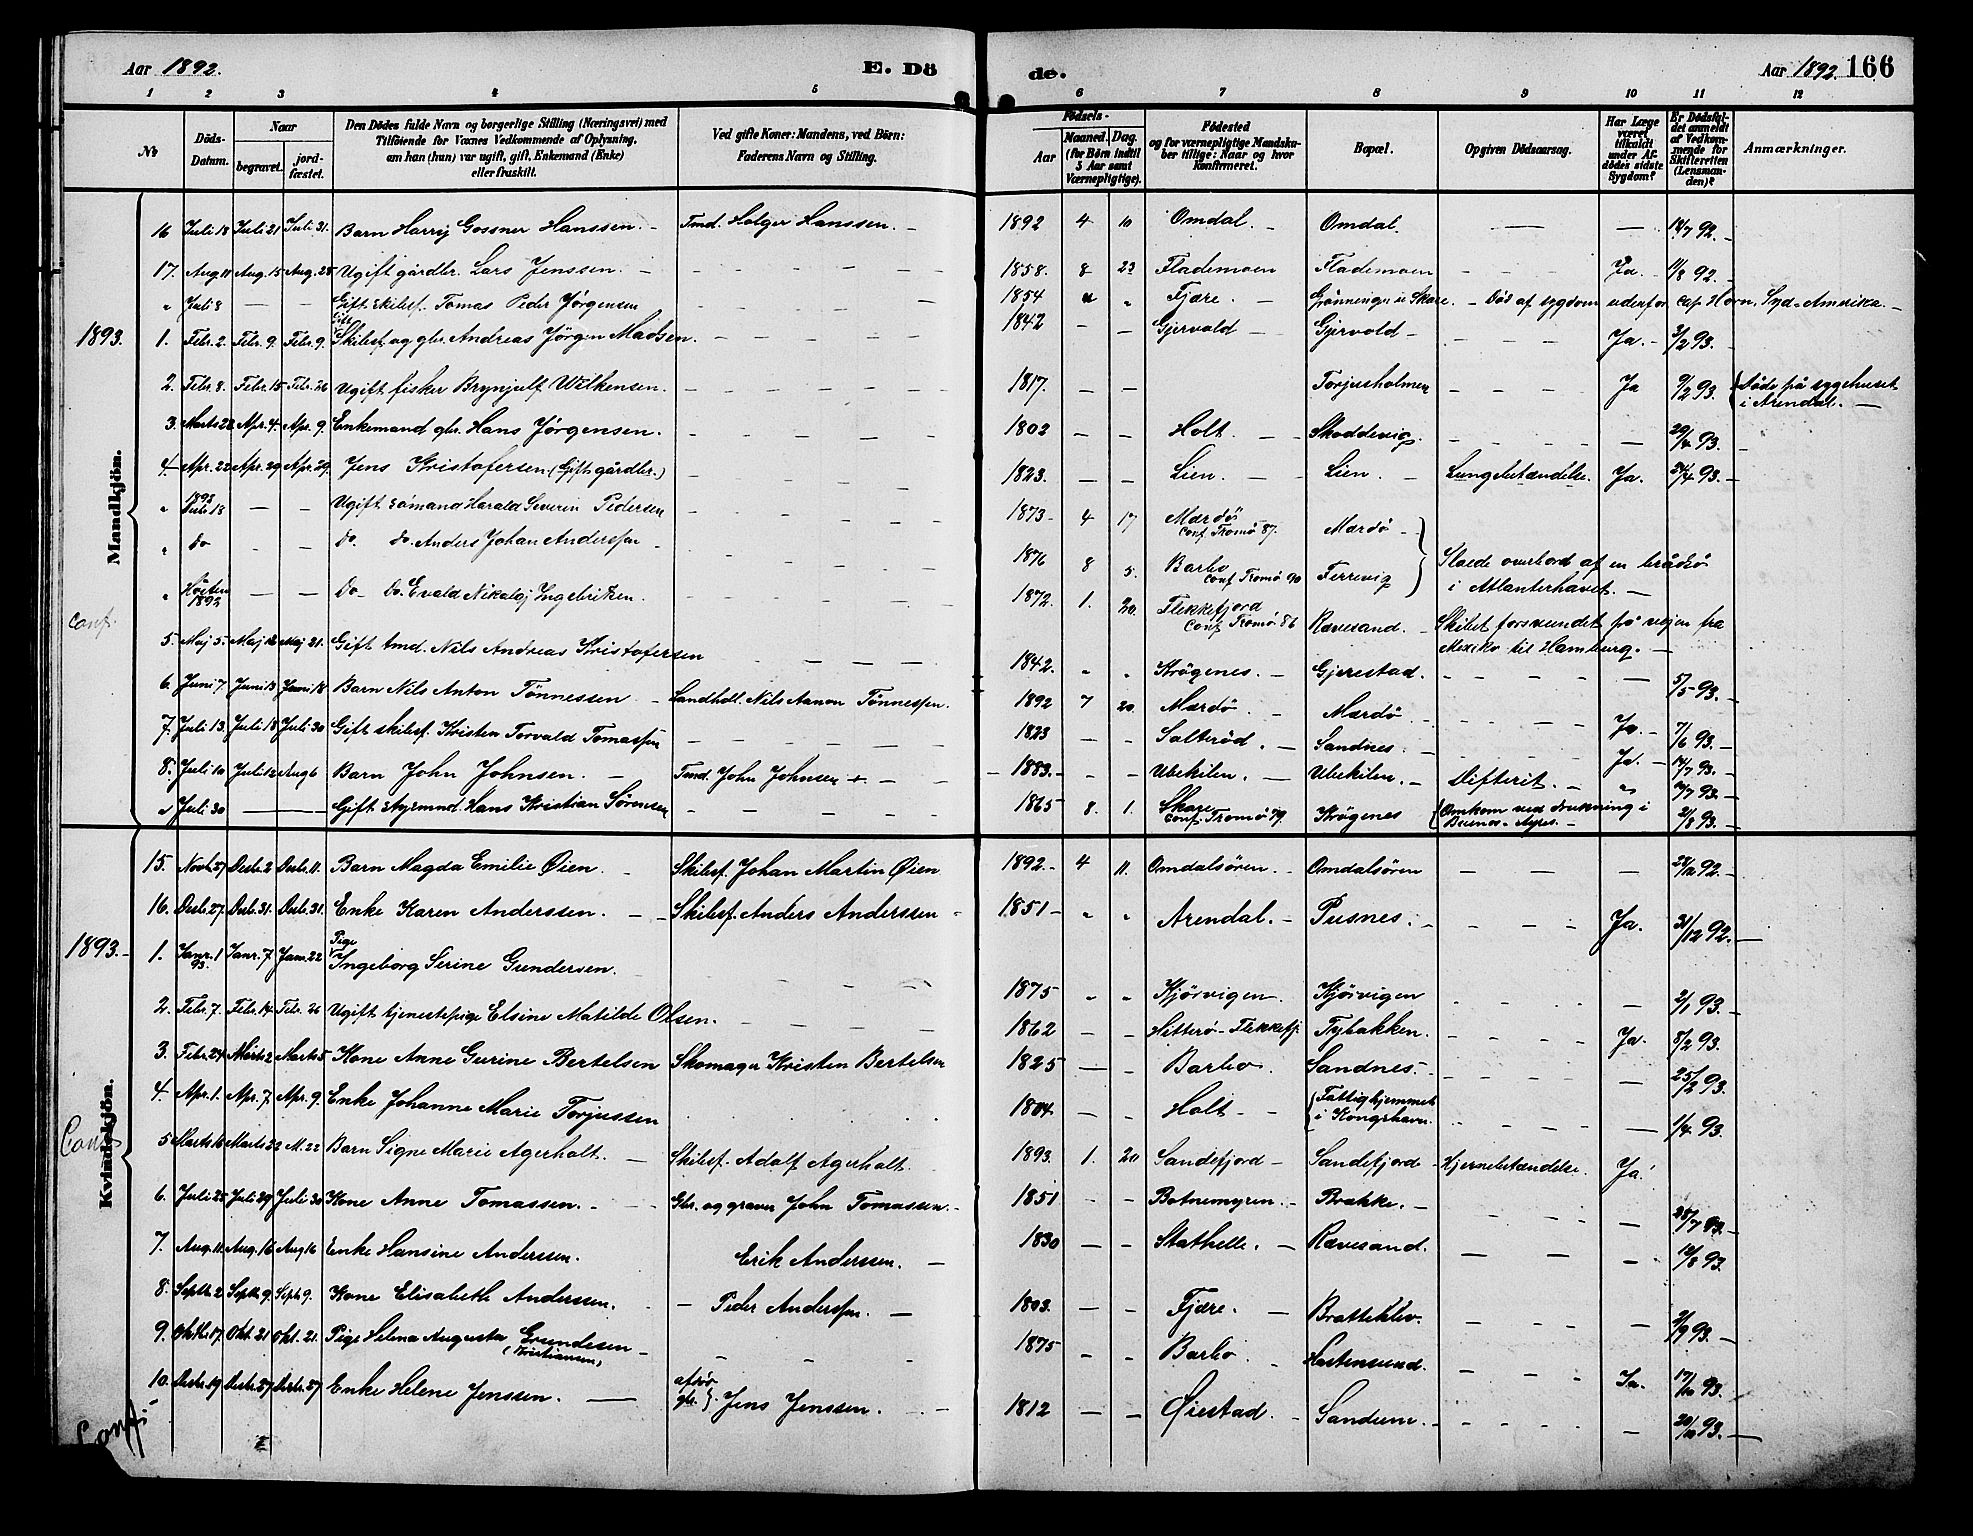 Aar 1892. E. Dö de. Aar 1892. 166
1 2 3 4 5 6 7 8 9 10 11 12
No Döds-Datum. Naar begravet. jordfæstet. Den Dödes fulde Navn og borgerlige Stilling (Næringsvei) med Tilföiende for Voxnes Vedkommende af Oplysning, om han (hun) var ugift, gift, Enkemand (Enke) eller fraskilt. Ved gifte Koner: Mandens, ved Börn: Faderens Navn og Stilling. Födsels- Aar Maaned. Dag. (for Börn indtil 5 Aar samt Værnepligtige). Födested og for værnepligtige Mandskaber tillige: Naar og hvor Konfirmeret. Bopæl. Opgiven Dödsaarsag. Har Læge været tilkaldt under Afdödes sidste Sygdom? Er Dödsfaldet anmeldt af Vedkommende for Skifteretten (Lensmanden)? Anmærkninger.
Mandkjön.
16 Juli 18 Juli 21 Juli 31. Barn Harry Gossner Hanssen. Tmd. Holger Hanssen. 1892 4 10 Omdal. Omdal. — — 18/7 92.
17. Aug. 11 Aug. 15 Aug. 28 Ugift gårdbr. Lars Jenssen. 1858. 8 23 Flademoen Flademoen Ja. 11/8 92.
" Juli 8 — — Gift Skibsf. Tomas Peder Jørgensen 1854 " " Fjære. Grønningn i Skare. Død af sygdom udenfor Cap Horn, Syd-Amerika.
1893. 1. Febr. 2. Febr. 9. Febr. 9. Gift Skibsf. og gbr. Andreas Jörgen Madsen. 1842 Gjervold Gjervold Ja. 3/2 93.
2. Febr. 8. Febr. 15 Febr. 26 Ugift fisker Brynjulf Wilkensen. 1817. Torjusholmen Ja 9/2 93. Döde på sygehuset i Arendal.
3. Marts 28 Apr. 4. Apr. 9. Enkemand gbr. Hans Jörgensen. 1802 Holt. Skoddevig. 29/4 93.
4. Apr. 22 Apr. 29 Apr. 29. Jens Kristofersen (Gift gårdbr.) 1823. Lien. Lien. Lungebetændelse. Ja. 24/4 93.
" 1892 Juli 13 — — Ugift sömand Harald Severin Pedersen 1873 4 17 Mærdö conf. Tromö 87. Mærdö
" Do — — Do. Do. Anders Johan Anderssen 1876 8 5. Barbo conf. Tromö 90 Ferrevig Slaede overbord af en brådsö i Atlanterhavet.
" Hösten 1892 — — Do Do. Evald Nikolaj Ingebritsen. 1872. 1. 20. Flekkefjord Conf Tromö 86 Rævesand. Skibet forsvundet på vejen fra Mexiko til Hamburg.
Conf.
5. Maj 5. Maj 12 Maj 21. Gift tmd. Nils Andreas Kristofersen 1842. " " Krögenes. Gjerestad. 5/5 93.
6. Juni 7. Juni 13 Juni 18. Barn Nils Anton Tönnessen Landhdl. Nils Aanon Tönnessen. 1892 7 20. Mærdö. Mærdö Ja. 7/6 93.
7. Juli 13. Juli 18 Juli 30 Gift skibsf. Kristen Torvald Tomassen 1823 Salteröd. Sandnes. Ja. 14/7 93.
8. Juli 10 Juli 12 Aug 6 Barn John Johnsen. Tmd. John Johnsen + 1883. Ubekilen. Ubekilen. Difterit. " 93.
" Juli 30 Gift styrmnd. Hans Kristian Sörensen 1865 8. 1. Skare Conf. Tromö 79. Krögenes Omkom ved drukning i Buenos-Ayres. 2/8 93.
Kvindekjön.
15. Novb. 27 Desb. 2 Desb. 11. Barn Magda Emilie Øien. Skibsf. Johan Martin Øien 1892. 4 11. Omdalsören. Omdalsören — — 92.
16. Desb. 27. Desb. 31. Desb. 31. Enke Karen Anderssen. Skibsf. Anders Anderssen 1851 " " Arendal. Pusnes. Ja. 31/12 92.
1893. 1. Janr. 1 93. Janr. 7 Jan. 22 Pige Ingeborg Serine Gundersen. 1875 " " Kjörvigen. Kjörvigen 2/1 93.
2. Febr. 7. Febr. 14 Febr. 26 Ugift tjenestepige Elsine Matilde Olsen. 1862 Hitterö-Flekkefj. Tybakken. Ja. 8/2 93.
3. Febr. 24 Marts 2 Marts 5 Kone Anne Gurine Bertelsen Skomager Kristen Bertelsen 1825 Barbo. Sandnes. 25/2 93.
4. Apr. 1. Apr. 7. Apr. 9. Enke Johanne Marie Torjussen 1804 Holt Fattighjemmet i Kongshavn. 1/4 93.
Conf.
5 Marts 16 Marts 22 M. 22 Barn Signe Marie Agerholt. Skibsf. Adolf Agerholt. 1893. 1. 20 Sandefjord Sandefjord Hjernebetændelse. Ja.
6. Juli 25 Juli 29 Juli 30 Kone Anne Tomassen. Gbr. og graver John Tomassen. 1851 Botnemyren. Brække. 28/7 93.
7. Aug. 11. Aug. 16 Aug 16 Enke Hansine Anderssen. Erik Anderssen. 1830 Stathelle. Rævesand. 12/8 93.
8. Septb. 2 Septb. 9. Sept. 9. Kone Elisabeth Anderssen. Peder Anderssen. 1803. Fjære. Bratteklev. 2/9 93.
9. Oktb. 17. Okt. 21 Okt. 21. Pige Helena Augusta Gundersen (Kristiansen) 1875 Barbo. Hastensund. Ja. 17/10 93.
10. Desbr. 19 Desbr. 27 Desbr. 27 Enke Helene Jenssen. afdö. gbr. Jens Jenssen. 1812 Øiestad. Sandum. 93.
Conf.